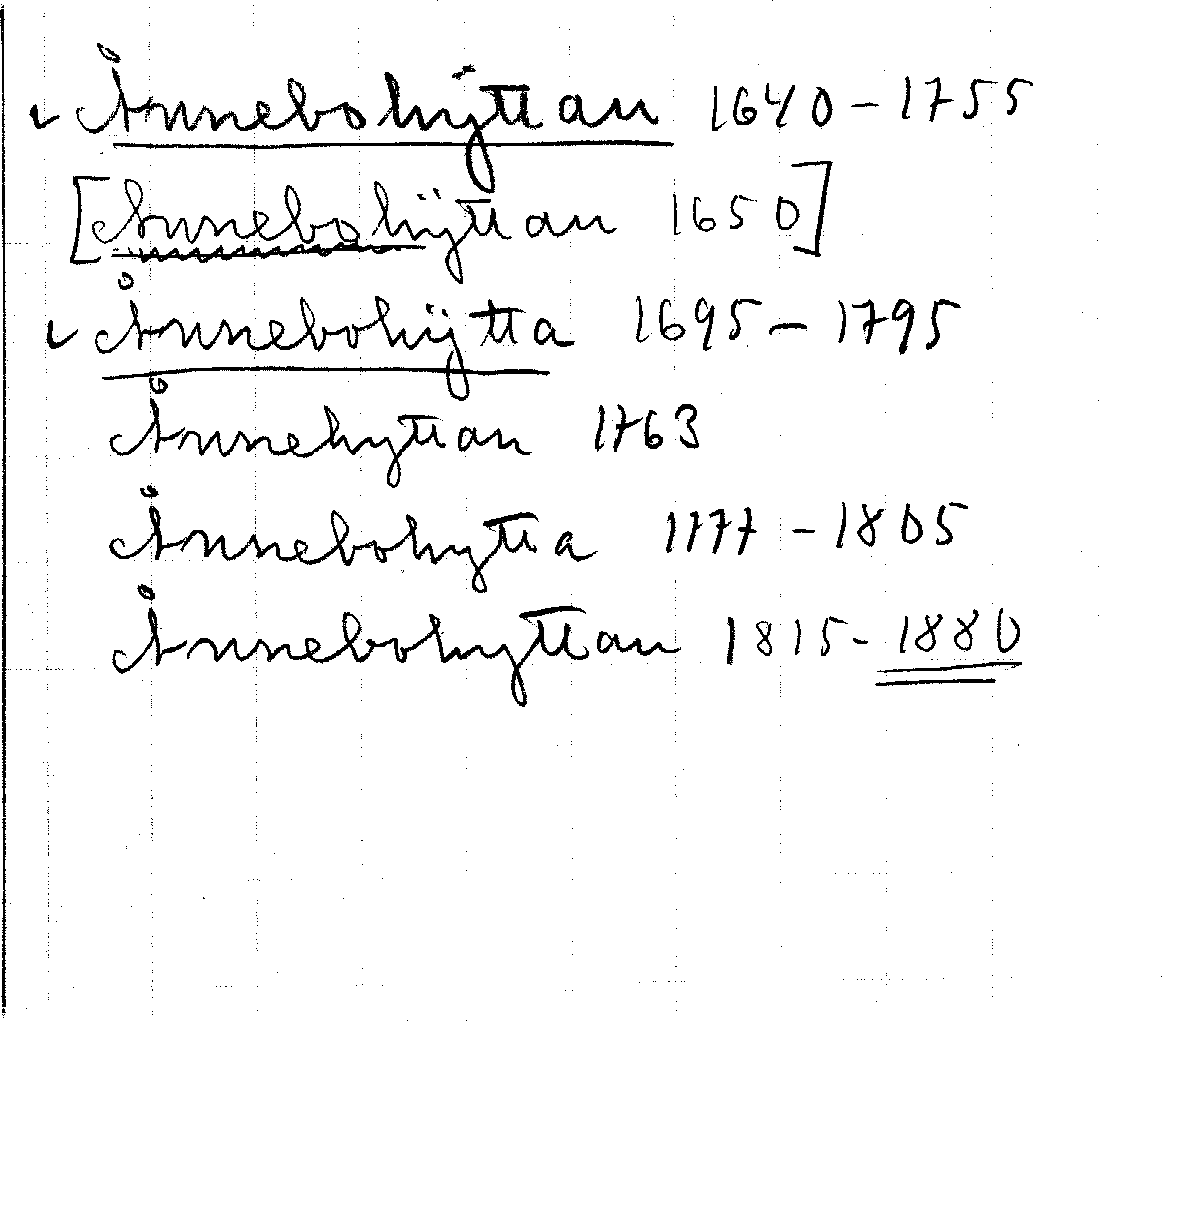 ✓ Ånnebohÿttan 1640-1755
[Annebohÿttan 1650]
✓ Ånnebohÿtta 1695-1795
Ånnehyttan 1763
Ånnebohytta 1777-1805
Ånnebohyttan 1815-1880